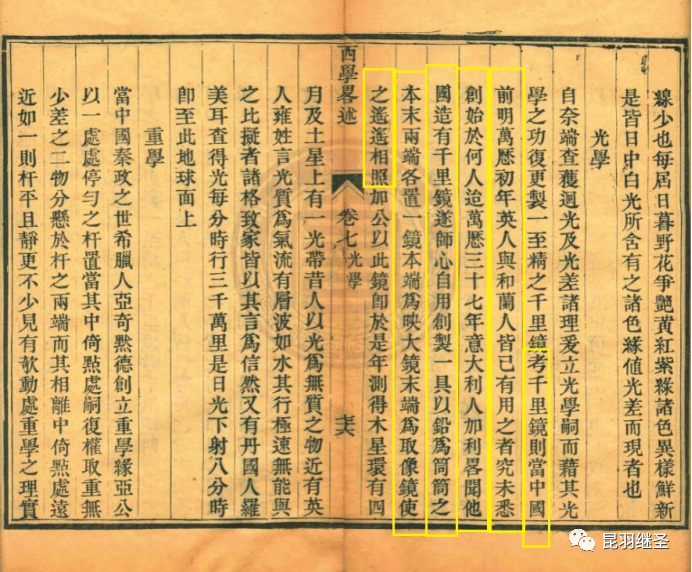 線少也每居日暮野花爭艷黃紅紫綠諸色異樣鮮新
是皆日中白光所含有之諸色緣値光差而現者也
光學
自奈端查獲迴光及光差諸理爰立光學嗣而藉其光
學之功復更製一至精之千里鏡考千里鏡則當中國
前明萬厯初年英人與和蘭人皆已有用之者究未悉
創始於何人造萬厯三十七年意大利人加利畧聞他
國造有千里鏡遂師心自用創製一具以鉛爲筒筒之
本末兩端各置一鏡本端爲映大鏡末端爲取像鏡使
之遙遙相照加公以此鏡卽於是年測得木星環有四
西學畧述
卷七 光學
月及土星上有一光帶昔人以光爲無質之物近有英
人雍姓言光質爲氣流有層波如水其行極速無能與
之比擬者諸格致家皆以其言爲信然又有丹國人羅
美耳查得光每分時行三千萬里是日光下射八分時
卽至此地球面上
重學
當中國秦政之世希臘人亞奇默德創立重學緣亞公
以一處處停勻之杆置當其中倚㸃處嗣復權取重無
少差之二物分懸於杆之兩端而其相離中倚㸃處遠
近如一則杆平且靜更不少見有欹動處重學之理實
昆羽继圣